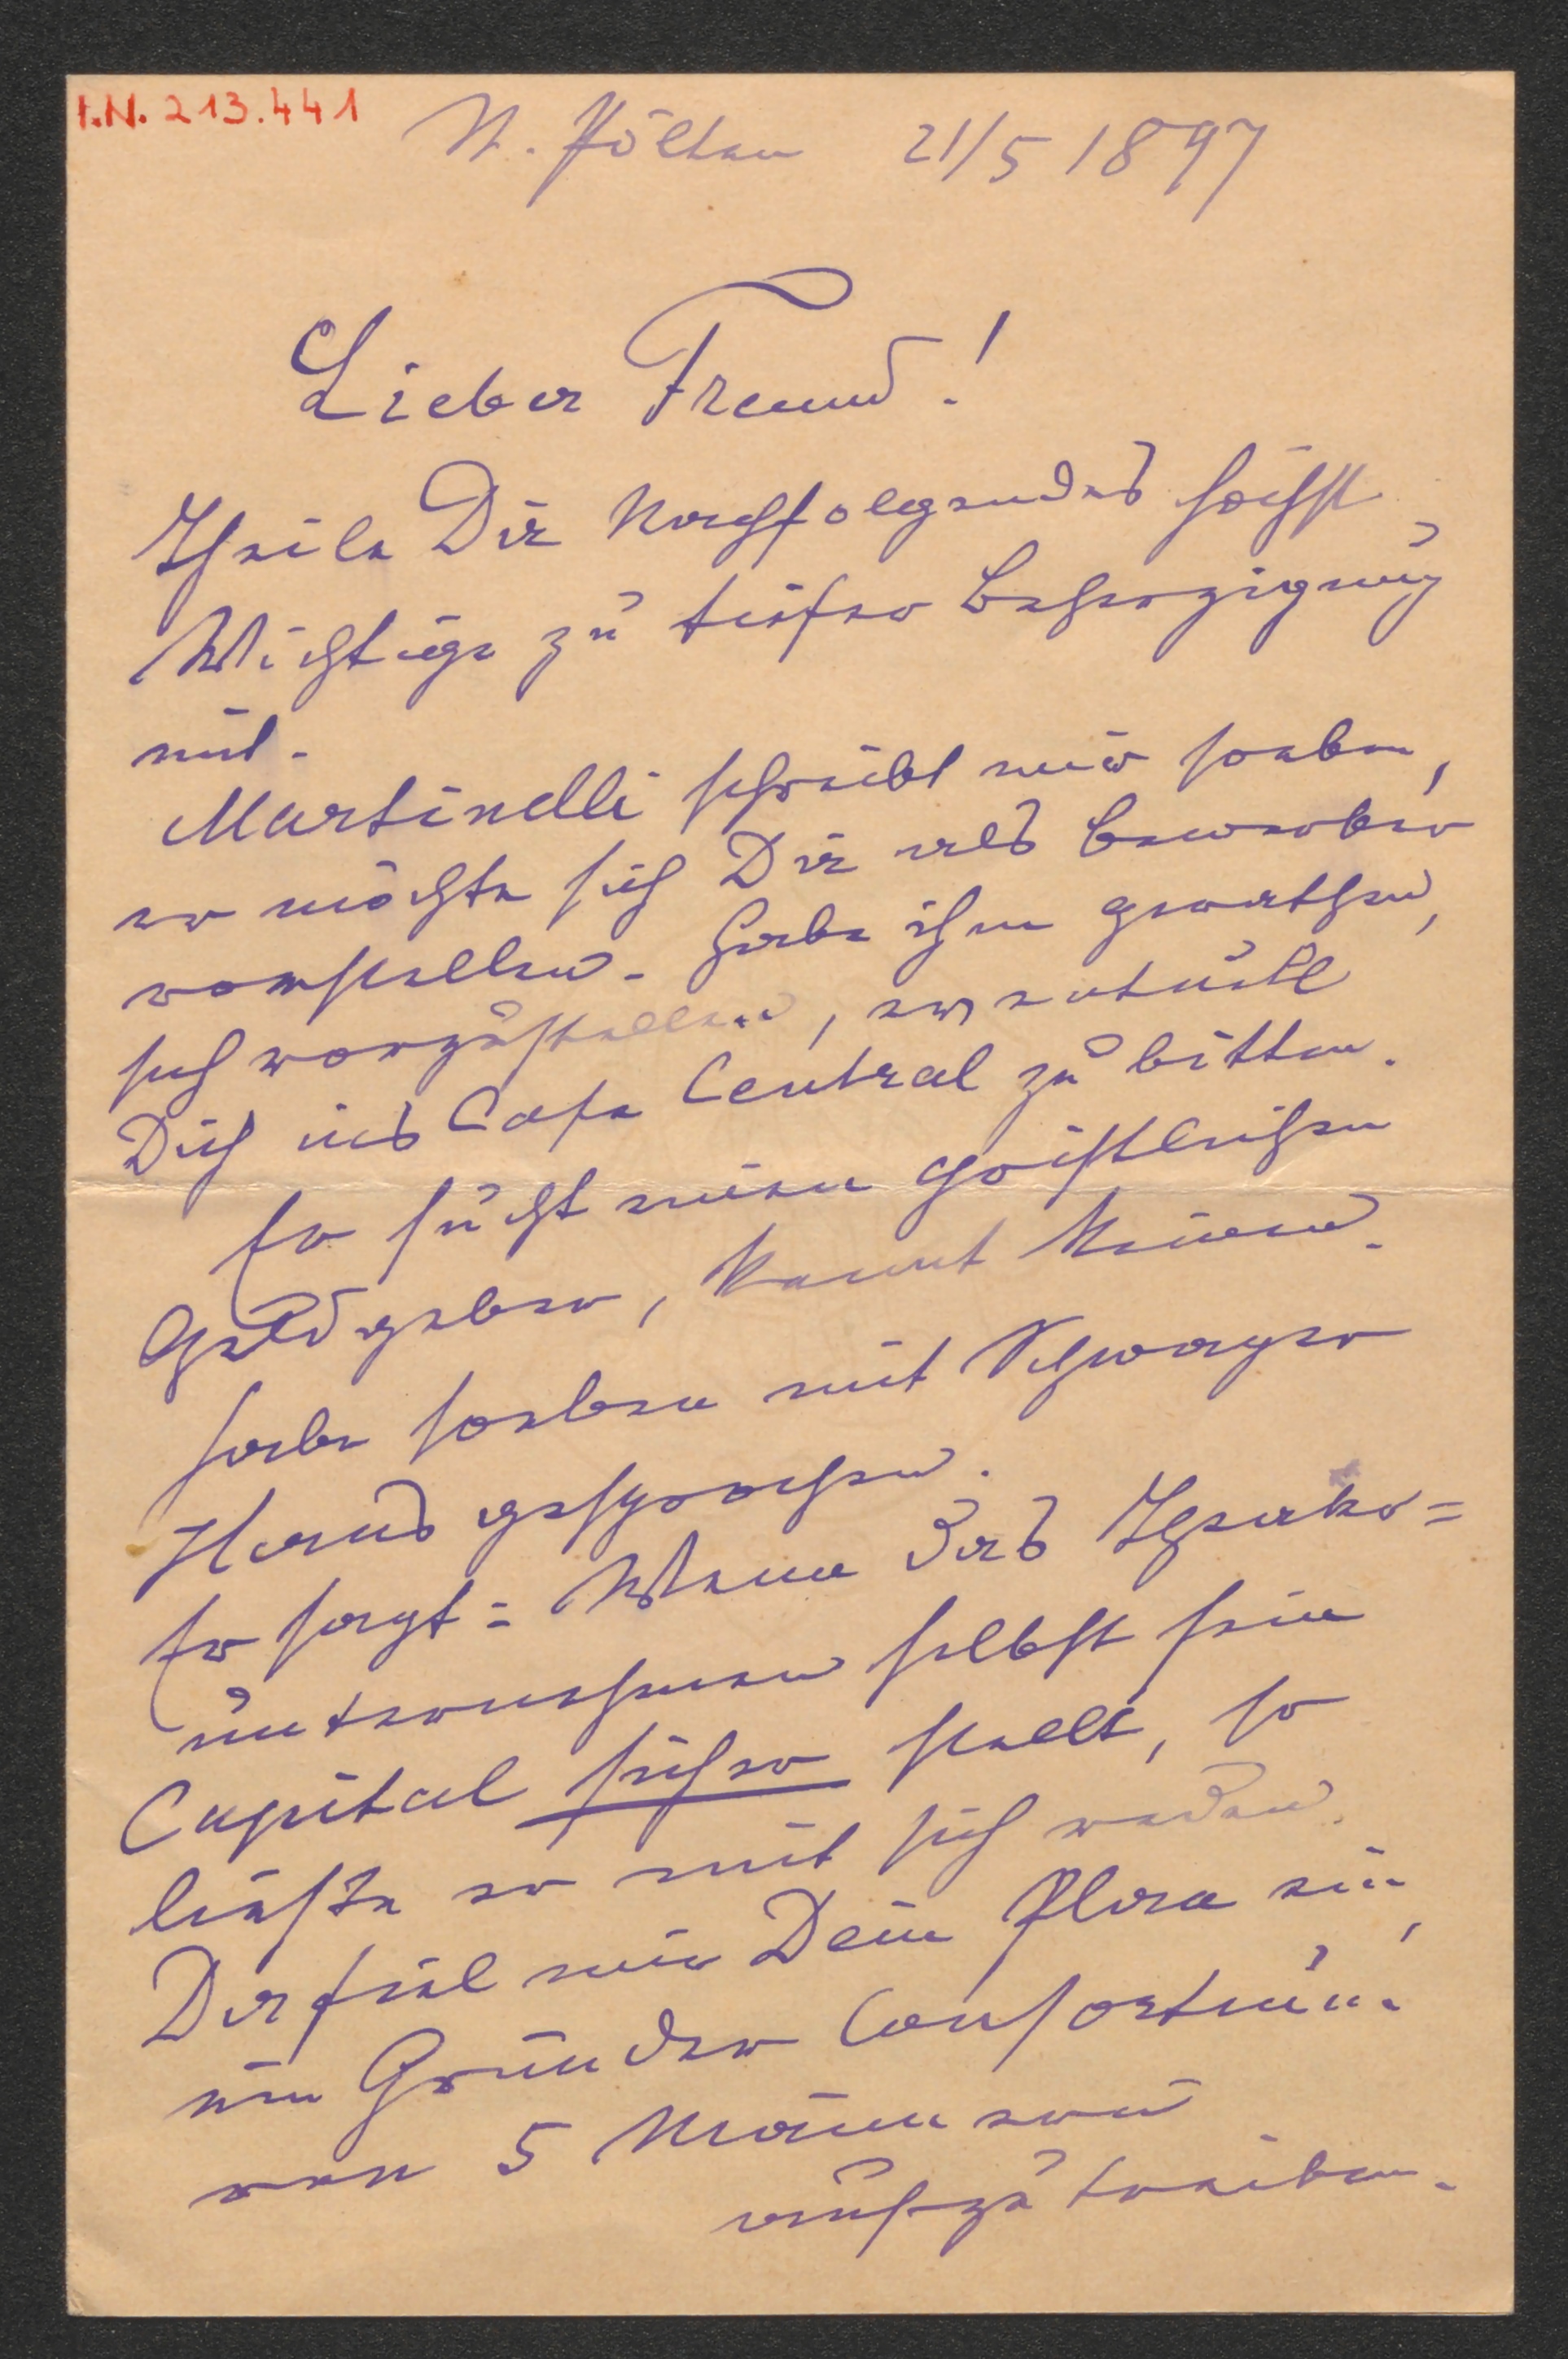 I.N. 213.441
St. Pölten 21/5 1897
Lieber Freund!
Theile Dir Nachfolgendes höchst
Wichtige zu tiefer Beherzigung
mit.
Martinelli schreibt mir soeben,
er möchte sich Dir als Bewerber
vorstellen. Habe ihm gerathen,
sich vorzustellen, eventuell
Dich ins Cafe Central zu bitten.
Er sucht einen geistlichen
Geldgeber, kennt keinen.
Habe soeben mit Schwager
Hans gesprochen.
Er sagt: Wenn das Theater=
unternehmen selbst sein
Capital sicher stellt, so
ließe er mit sich reden.
Da fiel mir Dein Plan ein,
ein Gründer Consortium
von 5 Männern
aufzutreiben.